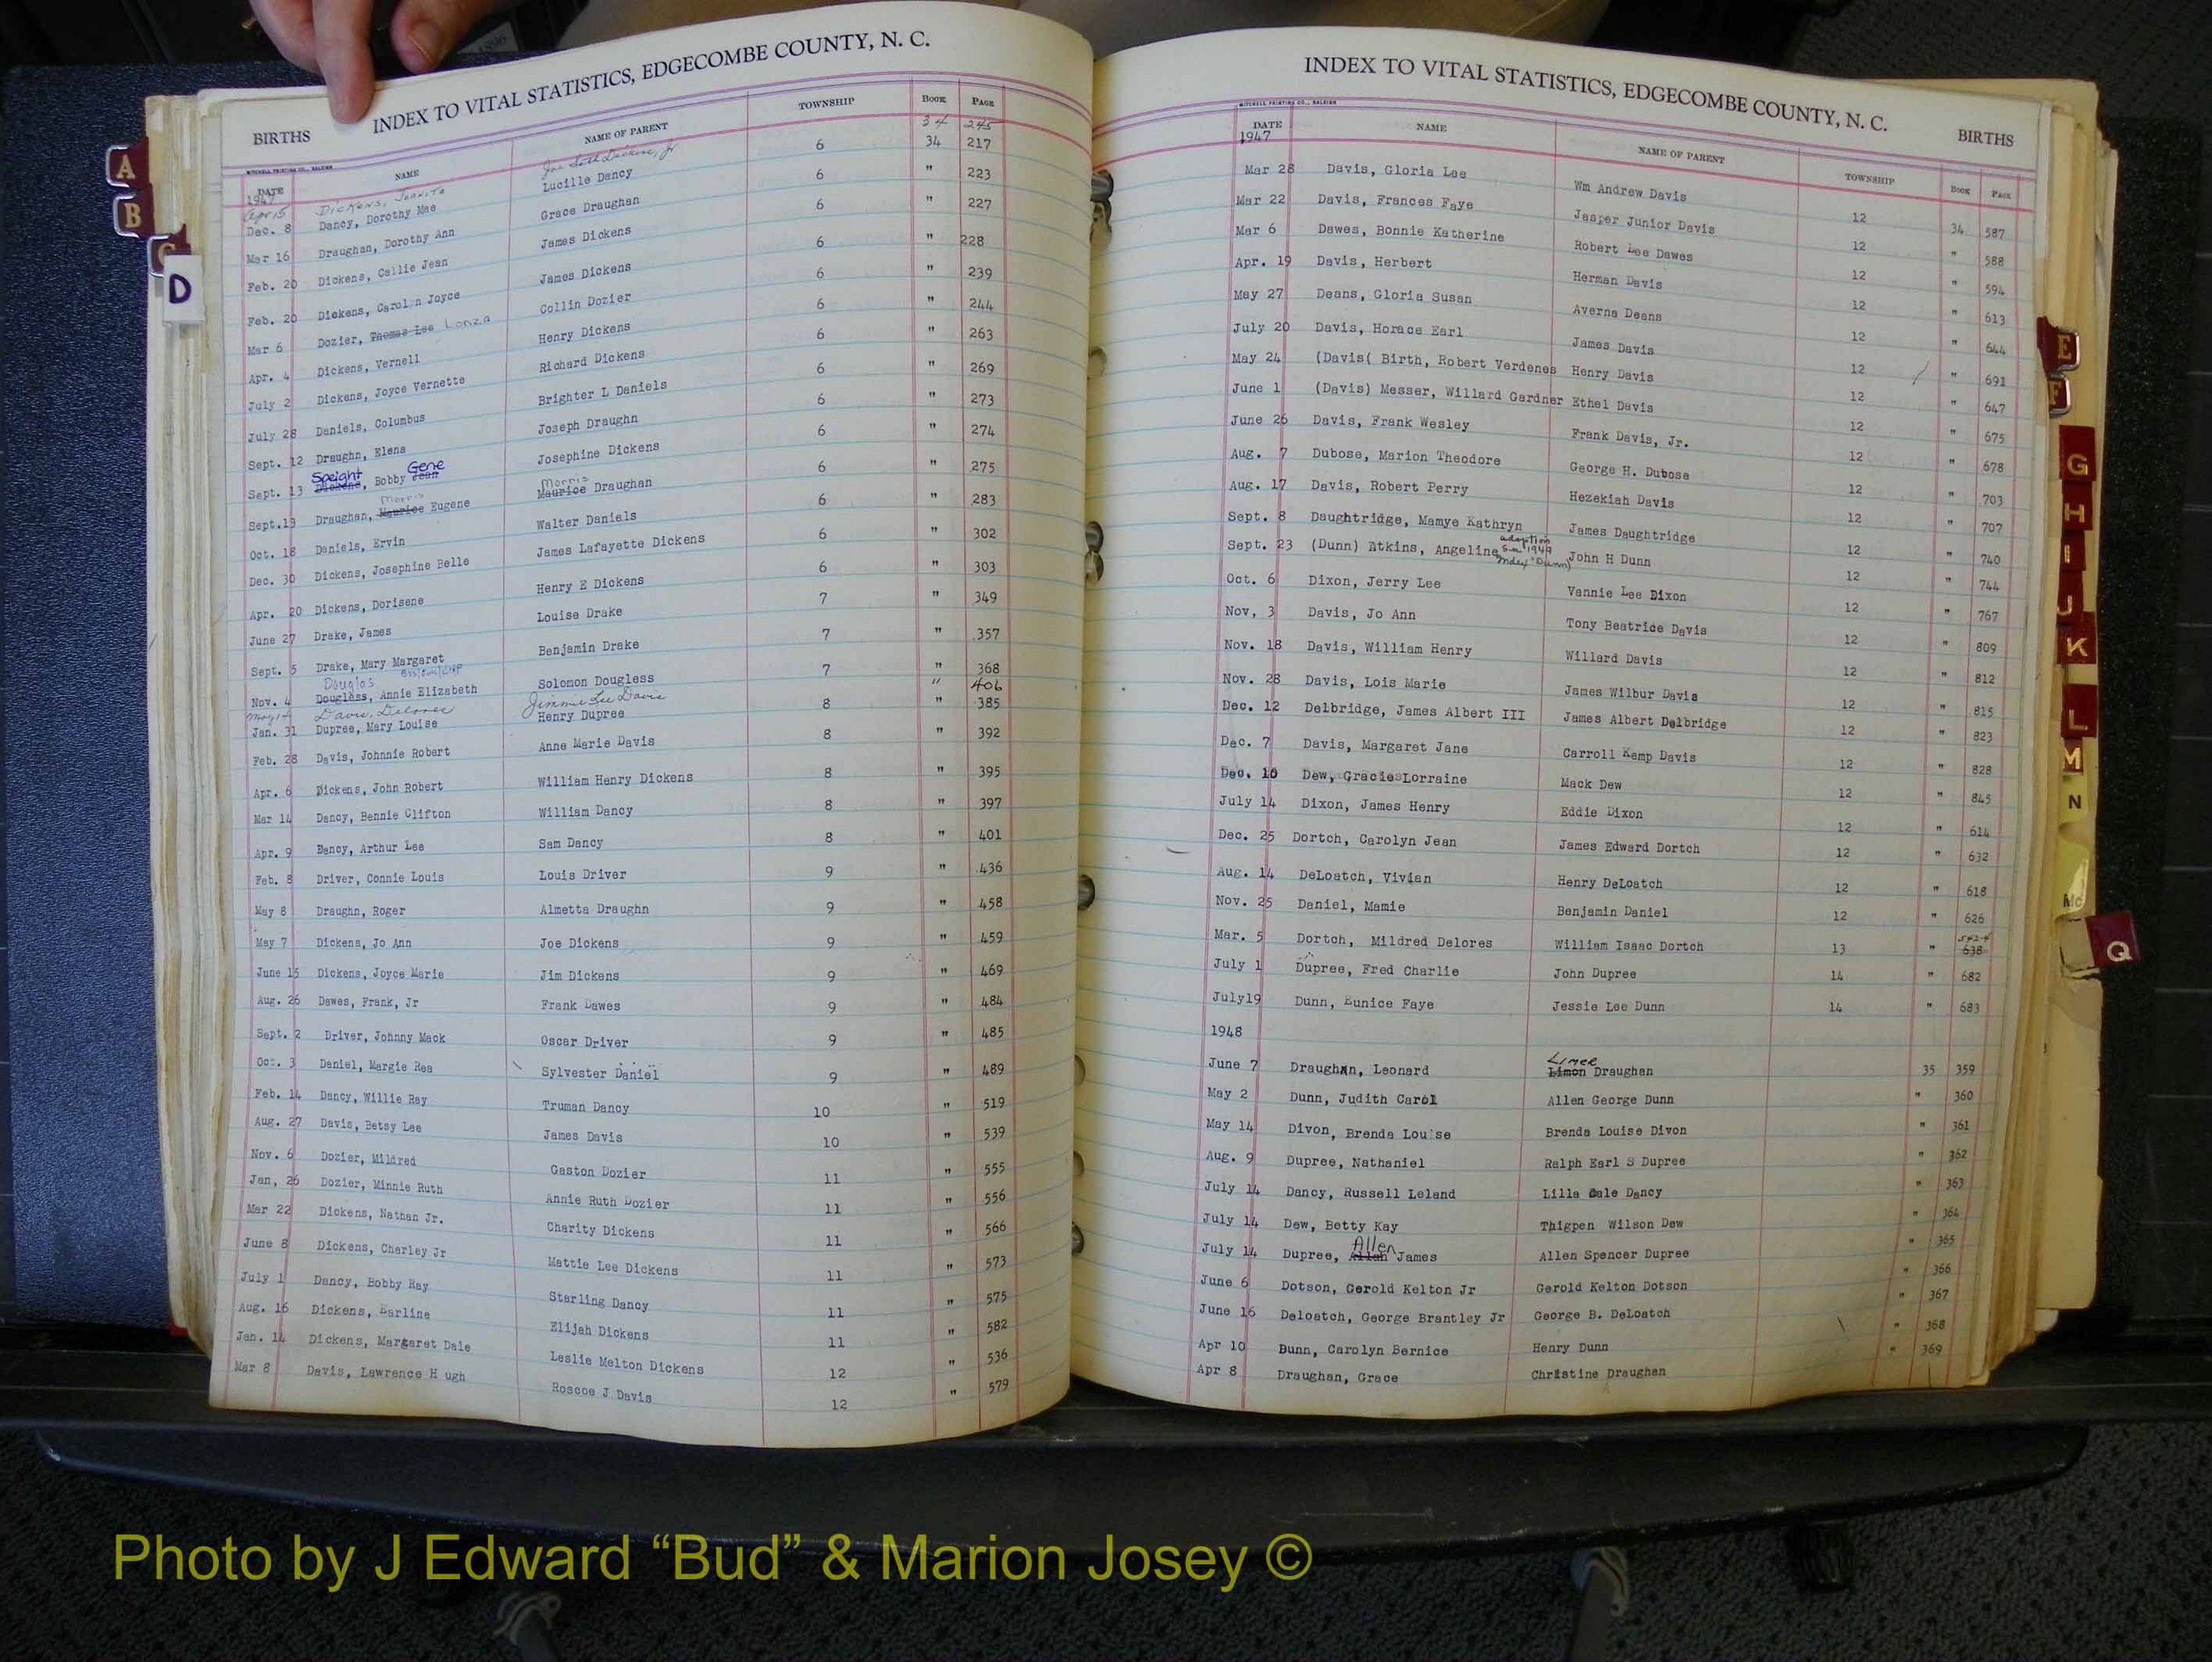 INDEX TO VITAL STATISTICS, EDGECOMBE COUNTY, N. C.
BIRTHS
MITCHELL PRINTING CO., RALEIGH
DATE NAME NAME OF PARENT TOWNSHIP BOOK PAGE
1947
Apr 15 Dickens, Juanita Joe Seth Dickens, Jr 34 245
Dec. 8 Dancy, Dorothy Mae Lucille Dancy 6 34 217
Mar 16 Draughan, Dorothy Ann Grace Draughan 6 " 223
Feb. 20 Dickens, Callie Jean James Dickens 6 " 227
Feb. 20 Dickens, Carolyn Joyce James Dickens 6 " 228
Mar 6 Dozier, Thomas Lee Lonza Collin Dozier 6 " 239
Apr. 4 Dickens, Vernell Henry Dickens 6 " 244
July 2 Dickens, Joyce Vernette Richard Dickens 6 " 263
July 28 Daniels, Columbus Brighter L Daniels 6 " 269
Sept. 12 Draughn, Elena Joseph Draughn 6 " 273
Sept. 13 Speight Dickens, Bobby Gene Jean Josephine Dickens 6 " 274
Sept.13 Draughan, Morris Maurice Eugene Morris Maurice Draughan 6 " 275
Oct. 18 Daniels, Ervin Walter Daniels 6 " 283
Dec. 30 Dickens, Josephine Belle James Lafayette Dickens 6 " 302
Apr. 20 Dickens, Dorisene Henry E Dickens 6 " 303
June 27 Drake, James Louise Drake 7 " 349
Sept. 5 Drake, Mary Margaret Benjamin Drake 7 " 357
Nov. 4 Douglas Douglass, Annie Elizabeth Solomon Dougless 7 " 368
May 14 Davis, Delores Jimmie Lee Davis " 406
Jan. 31 Dupree, Mary Louise Henry Dupree 8 " 385
Feb. 28 Davis, Johnnie Robert Anne Marie Davis 8 " 392
Apr. 6 Dickens, John Robert William Henry Dickens 8 " 395
Mar 14 Dancy, Bennie Clifton William Dancy 8 " 397
Apr. 9 Dancy, Arthur Lee Sam Dancy 8 " 401
Feb. 8 Driver, Connie Louis Louis Driver 9 " 436
May 8 Draughn, Roger Almetta Draughn 9 " 458
May 7 Dickens, Jo Ann Joe Dickens 9 " 459
June 15 Dickens, Joyce Marie Jim Dickens 9 " 469
Aug. 26 Dawes, Frank, Jr Frank Dawes 9 " 484
Sept. 2 Driver, Johnny Mack Oscar Driver 9 " 485
Oct. 3 Daniel, Margie Rea Sylvester Daniel 9 " 489
Feb. 14 Dancy, Willie Ray Truman Dancy 10 " 519
Aug. 27 Davis, Betsy Lee James Davis 10 " 539
Nov. 6 Dozier, Mildred Gaston Dozier 11 " 555
Jan, 26 Dozier, Minnie Ruth Annie Ruth Dozier 11 " 556
Mar 22 Dickens, Nathan Jr. Charity Dickens 11 " 566
June 8 Dickens, Charley Jr Mattie Lee Dickens 11 " 573
July 1 Dancy, Bobby Ray Starling Dancy 11 " 575
Aug. 16 Dickens, Earline Elijah Dickens 11 " 582
Jan. 14 Dickens, Margaret Dale Leslie Melton Dickens 12 " 536
Mar 8 Davis, Lawrence H ugh Roscoe J Davis 12 " 579
INDEX TO VITAL STATISTICS, EDGECOMBE COUNTY, N. C.
BIRTHS
MITCHELL PRINTING CO., RALEIGH
DATE NAME NAME OF PARENT TOWNSHIP BOOK PAGE
1947
Mar 28 Davis, Gloria Lee Wm Andrew Davis 12 34 587
Mar 22 Davis, Frances Faye Jasper Junior Davis 12 " 588
Mar 6 Dawes, Bonnie Katherine Robert Lee Dawes 12 " 594
Apr. 19 Davis, Herbert Herman Davis 12 " 613
May 27 Deans, Gloria Susan Averna Deans 12 " 644
July 20 Davis, Horace Earl James Davis 12 " 691
May 24 (Davis( Birth, Robert Verdenes Henry Davis 12 " 647
June 1 (Davis) Messer, Willard Gardner Ethel Davis 12 " 675
June 26 Davis, Frank Wesley Frank Davis, Jr. 12 " 678
Aug. 7 Dubose, Marion Theodore George H. Dubose 12 " 703
Aug. 17 Davis, Robert Perry Hezekiah Davis 12 " 707
Sept. 8 Daughtridge, Mamye Kathryn James Daughtridge 12 " 740
Sept. 23 (Dunn) Atkins, Angeline adoption See 1949 Index "Dunn) John H Dunn 12 " 744
Oct. 6 Dixon, Jerry Lee Vannie Lee Dixon 12 " 767
Nov, 3 Davis, Jo Ann Tony Beatrice Davis 12 " 809
Nov. 18 Davis, William Henry Willard Davis 12 " 812
Nov. 28 Davis, Lois Marie James Wilbur Davis 12 " 815
Dec. 12 Delbridge, James Albert III James Albert Delbridge 12 " 823
Dec. 7 Davis, Margaret Jane Carroll Kemp Davis 12 " 828
Dec. 10 Dew, Gracie Lorraine Mack Dew 12 " 845
July 14 Dixon, James Henry Eddie Dixon 12 " 614
Dec. 25 Dortch, Carolyn Jean James Edward Dortch 12 " 632
Aug. 14 DeLoatch, Vivian Henry DeLoatch 12 " 618
Nov. 25 Daniel, Mamie Benjamin Daniel 12 " 626
Mar. 5 Dortch, Mildred Delores William Isaac Dortch 13 " 638
July 1 Dupree, Fred Charlie John Dupree 14 " 682
July19 Dunn, Eunice Faye Jessie Lee Dunn 14 " 683
1948
June 7 Draughan, Leonard Limon Draughan 35 359
May 2 Dunn, Judith Carol Allen George Dunn " 360
May 14 Divon, Brenda Louise Brenda Louise Divon " 361
Aug. 9 Dupree, Nathaniel Ralph Earl S Dupree " 362
July 14 Dancy, Russell Leland Lilla Dale Dancy " 363
July 14 Dew, Betty Kay Thigpen Wilson Dew " 364
July 14 Dupree, Allen James Allen Spencer Dupree " 365
June 6 Dotson, Gerold Kelton Jr Gerold Kelton Dotson " 366
June 16 Deloatch, George Brantley Jr George B. DeLoatch " 367
Apr 10 Dunn, Carolyn Bernice Henry Dunn " 368
Apr 8 Draughan, Grace Christine Draughan " 369
A
B
C
D
E
F
G
H
I
J
K
L
M
N
Mc
Q
Photo by J Edward “Bud” & Marion Josey ©